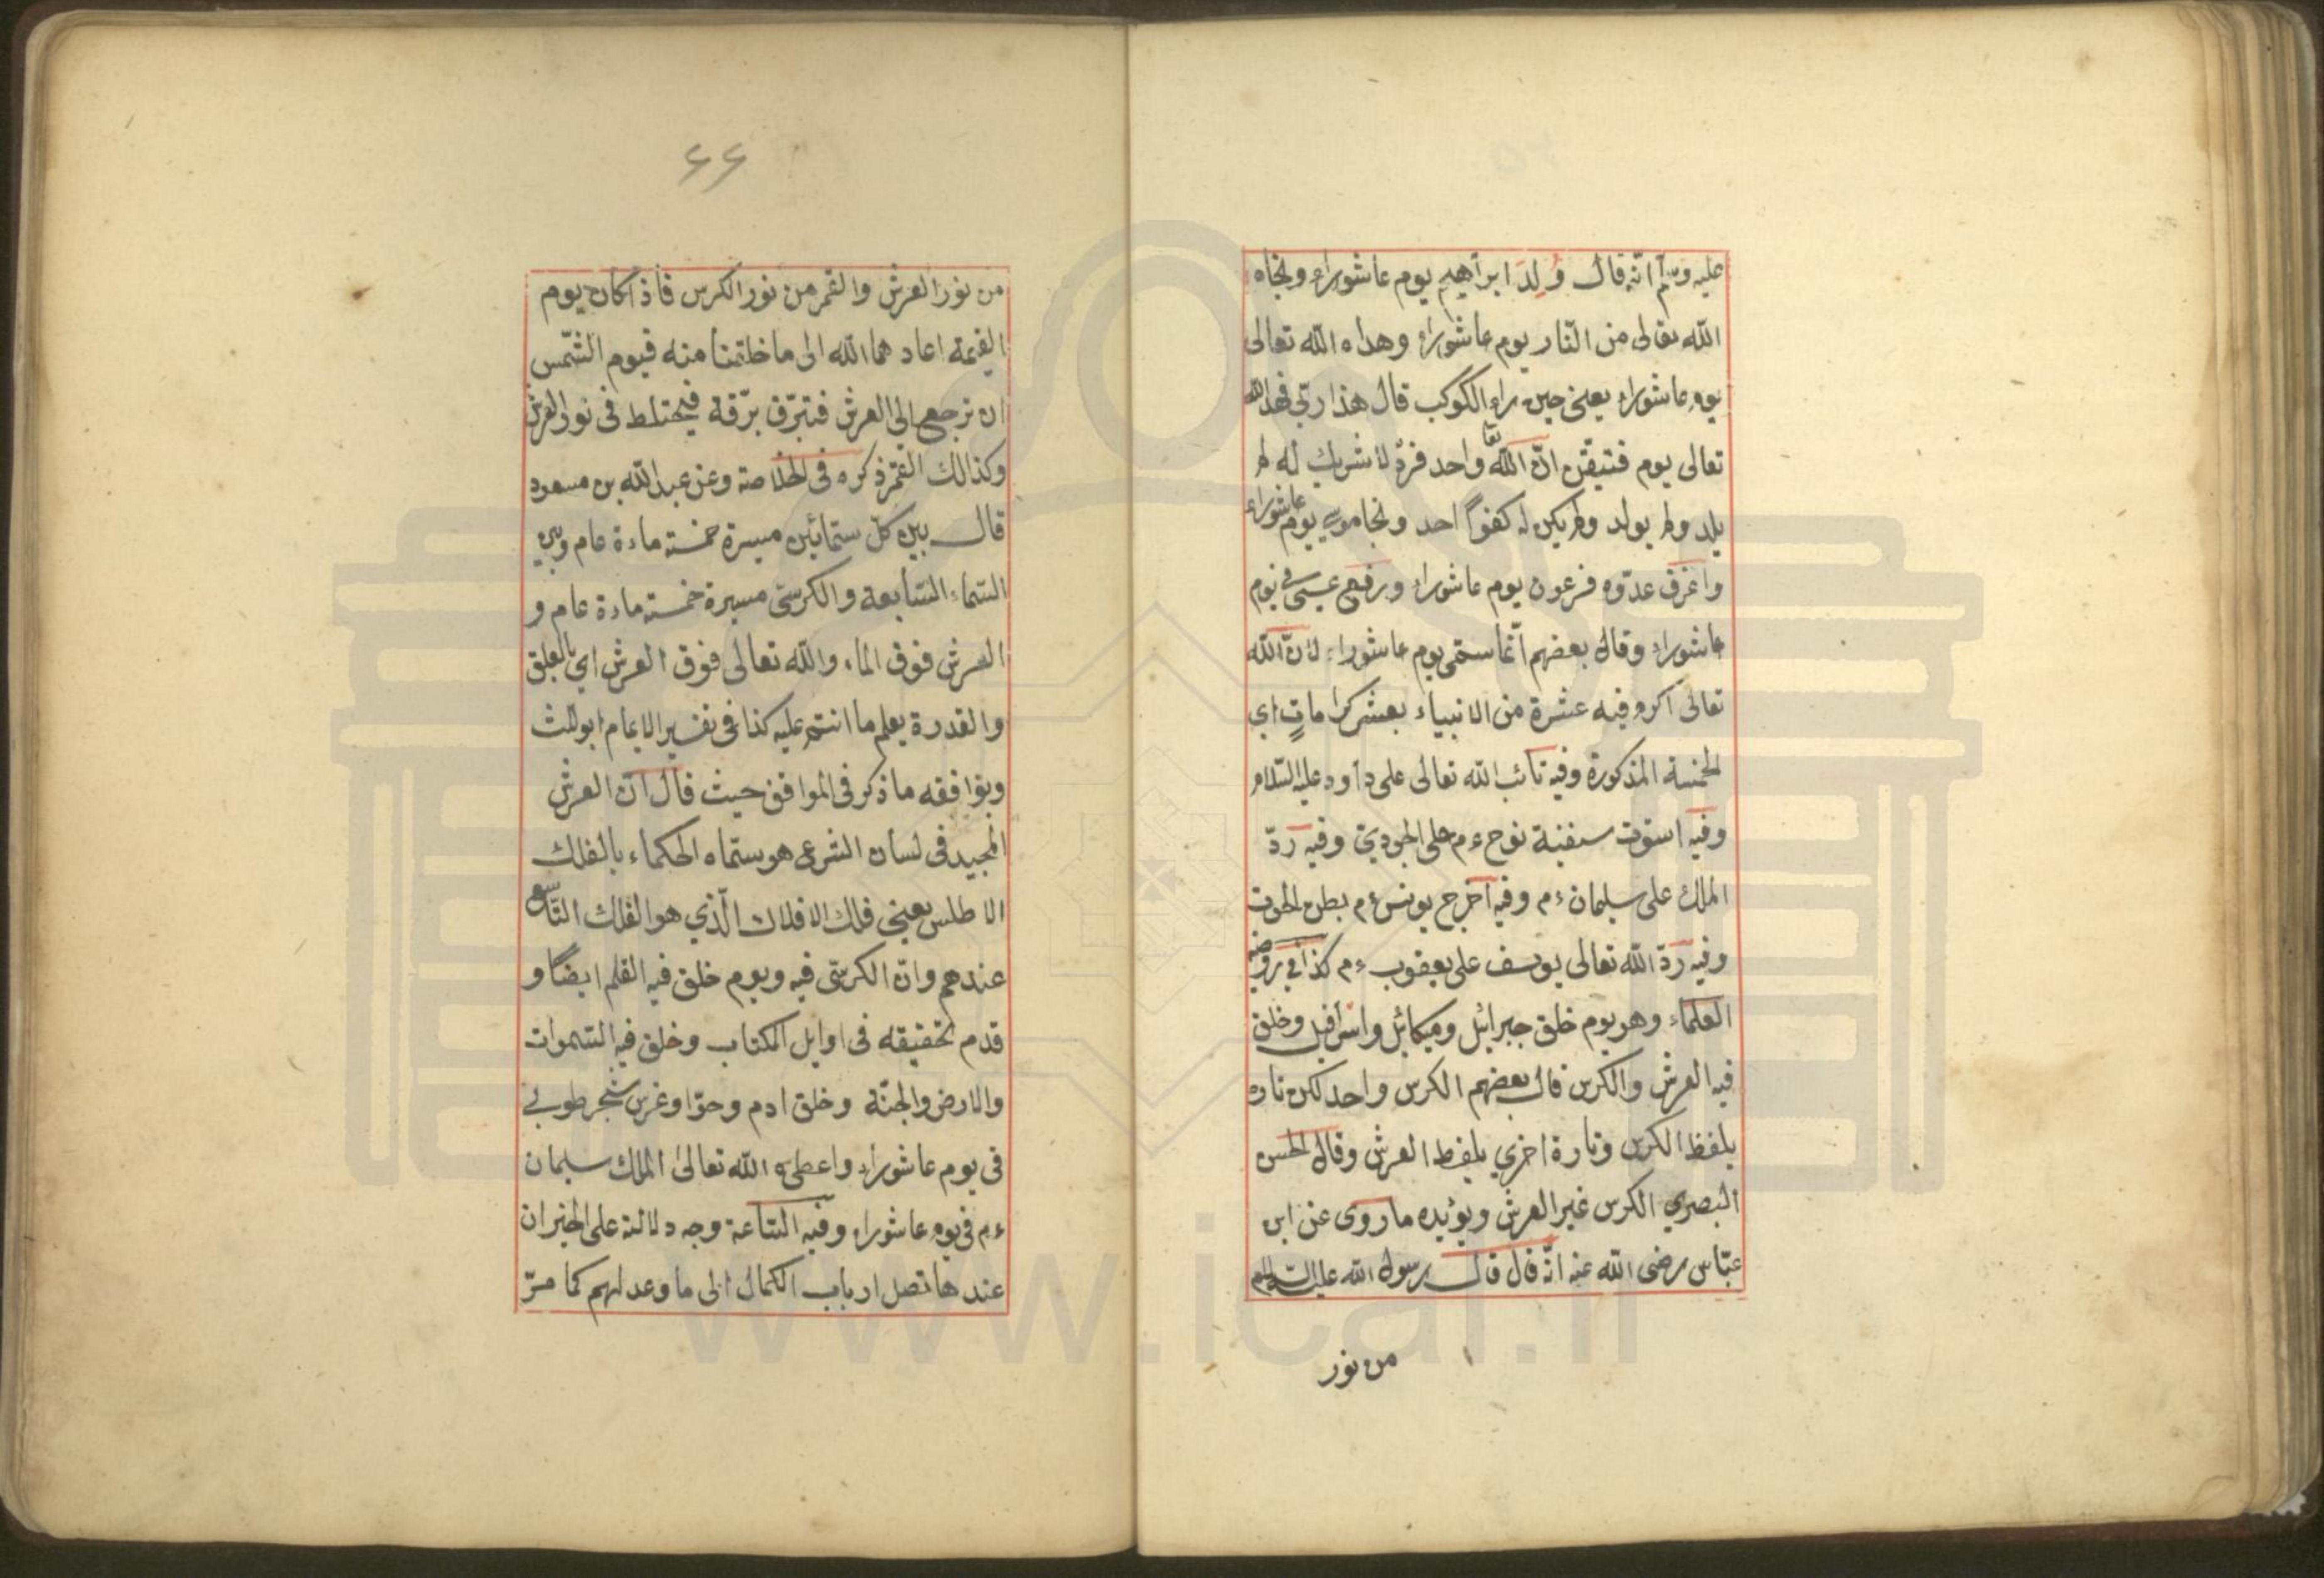 عليه وسلم انّه قال وُلِدَ ابراهيم يوم عاشوراء ونجاه
الله تعالى من النّار يوم عاشوراء وهداه الله تعالى
يوم عاشوراء يعني حين راء الكوكب قال هذا ربّي فهداه الله
تعالى يوم فتيقّن انّ الله تعا واحد فردٌ لا شريك له لم
يلد ولم يولد ولم يكن له كفوًا احد ونجا موسى يوم عاشوراء
واغرق عدّوه فرعون يوم عاشوراء ورفع عيسى في يوم
عاشوراء وقال بعضهم انّما سمّى يوم عاشوراء لانّ الله
تعالى اكرم فيه عشرة من الانبياء بعشر كراماتٍ اي
الخمسة المذكورة وفيه تائب الله تعالى على داود عليه السّلام
وفيه استوت سفينة نوح ءم على الجودي وفيه ردّ
الملك على سليمان ءم وفيه اخرج يونس ءم بطن الحوت
وفيه ردّ الله تعالى يوسف على يعقوب ءم كذا في روضة
العلماء وهو يوم خلق جبرائيل وميكائيل واسرافيل وخلق
فيه العرش والكرس قال بعضهم الكرس واحد لكن تارة
بلفظ الكرس وتارة اخري بلفظ العرش وقال الحسن
البصري الكرس غير العرش ويؤيده ما روى عن ابن
عبّاس رضى الله عنه انّه قال قال رسول الله عليه السلام
من نور
٦٦
من نور العرش والقمر من نور الكرس فاذ اكان يوم
القيمة اعادهما الله الى ما خلقتا منه فيوم الشّمس
ان ترجع الي العرش فتبرّق برّقة فيختلط في نور العرش
وكذالك القمر ذكره في الخلاصة وعن عبد الله بن مسعود
قال بين كلّ سمائين مسيرة خمسة مادة عام وبين
السّماء السّابعة والكرسّى مسيرة خمسة مادة عام و
العرش فوق الماء والله تعالى فوق العرش اي بالعلق
والقدرة يعلم ما انتم عليه كذا في تفسير الامام ابو الليث
ويوافقه ما ذكر في المواقف حيث قال انّ العرش
المجيد في لسان الشرعى هو سمّاه الحكماء بالفلك
الاطلس يعني فلك الافلاك الّذي هو الفلك التّاسع
عندهم وانّ الكرسّى فيه ويوم خلق فيه القلم ايضًا و
قدم تحقيقه في اوايل الكتاب وخلق فيه السّموات
والارض والجنّة وخلق ادم وحوّا وغرس شجر طوبي
في يوم عاشوراء واعطى الله تعالى الملك سليمان
ءم في يوم عاشوراء وفيه السّاعة وجه دلالته على الخير ان
عندها تصل ارباب الكمال الى ما وعد لهم كما مرّ